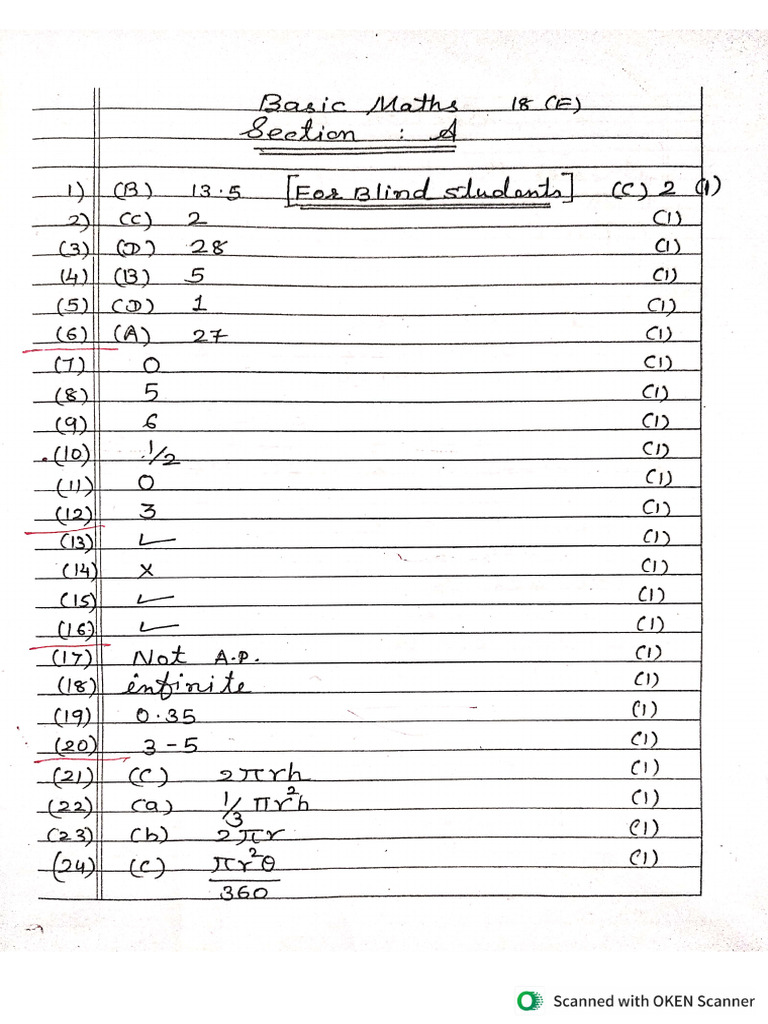 Basic Maths 18 (E)
Section : A
1) (B) 13.5 [For Blind students] (C) 2 (1)
2) (C) 2 (1)
(3) (D) 28 (1)
(4) (B) 5 (1)
(5) (D) 1 (1)
(6) (A) 27 (1)
(7) 0 (1)
(8) 5 (1)
(9) 6 (1)
(10) 1/2 (1)
(11) 0 (1)
(12) 3 (1)
(13) ✓ (1)
(14) × (1)
(15) ✓ (1)
(16) ✓ (1)
(17) Not A.P. (1)
(18) infinite (1)
(19) 0.35 (1)
(20) 3-5 (1)
(21) (C) 2πrh (1)
(22) (a) 1/3 πr²h (1)
(23) (b) 2πr (1)
(24) (C) πr²θ (1)
360
Scanned with OKEN Scanner